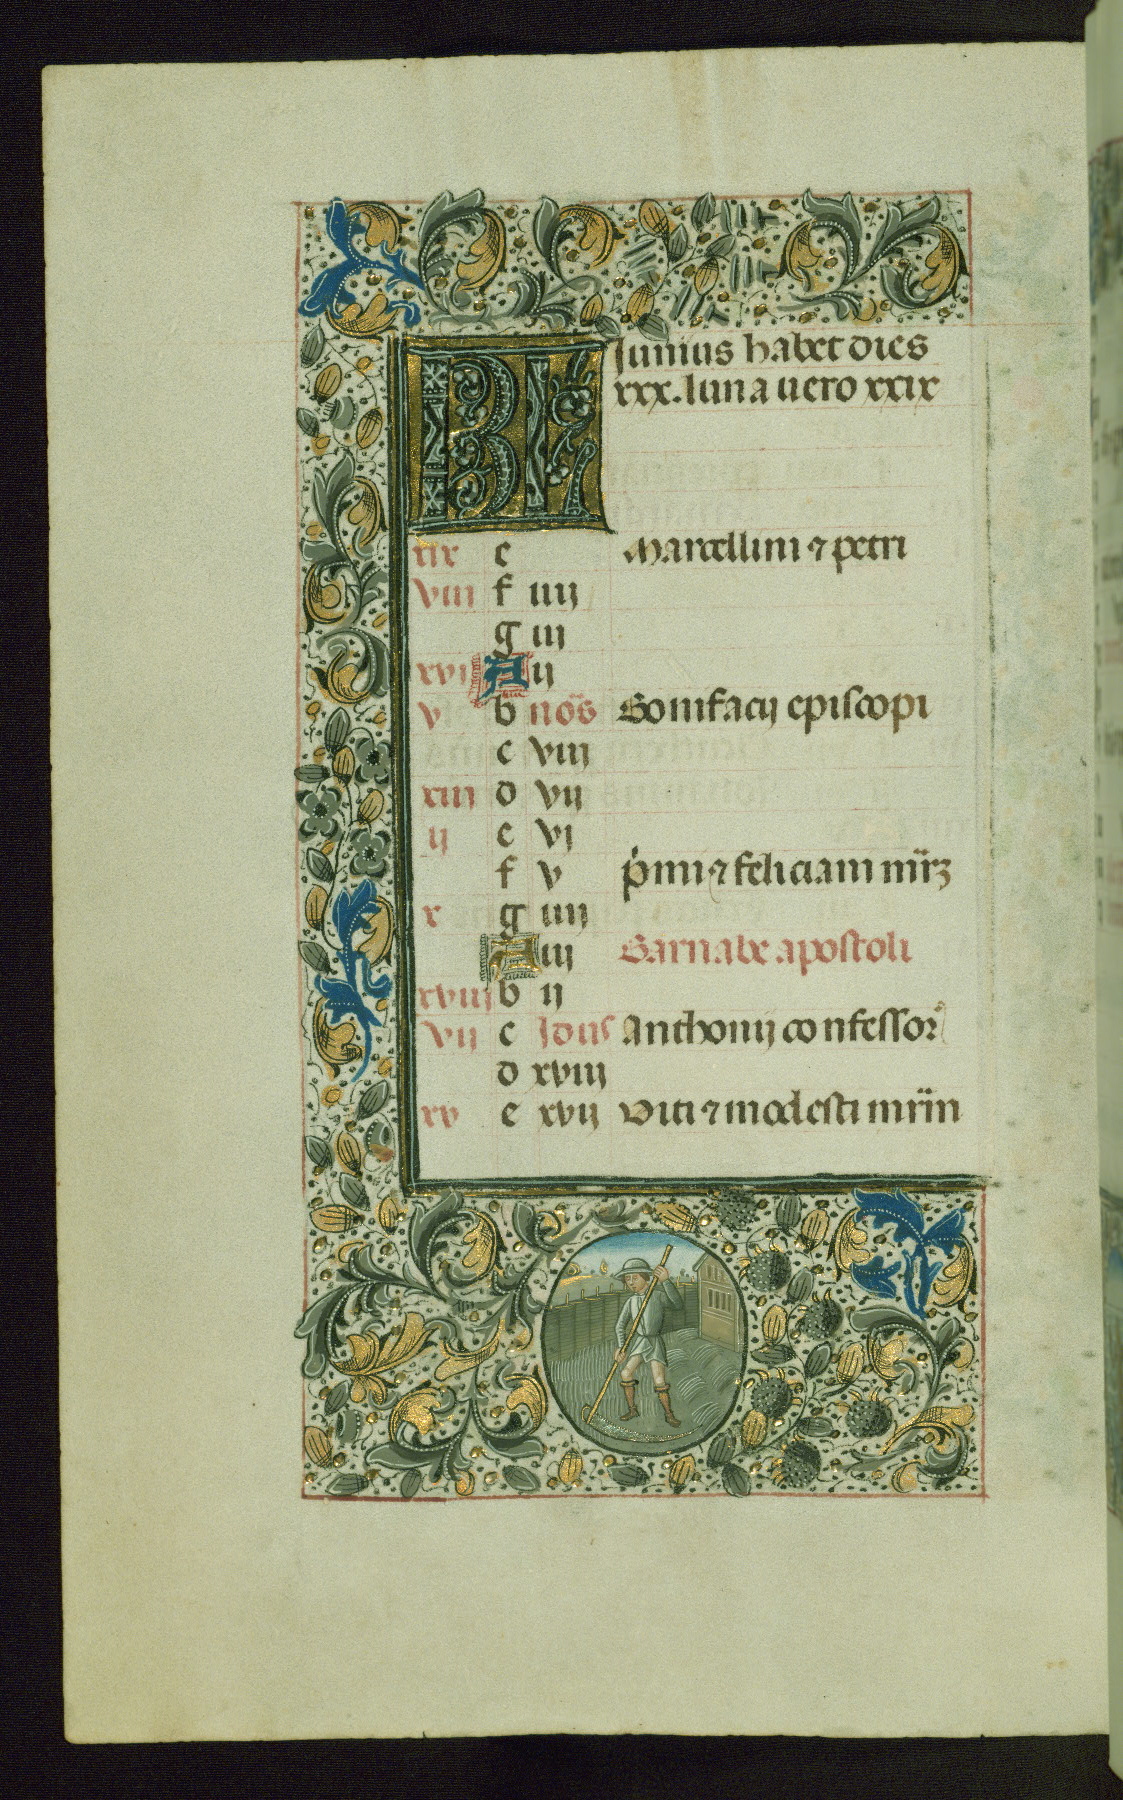 KL Junius habet dies
xxx. luna uero xxix
xix e Marcellini ⁊ petri
viii f iiij
g iij
xvi A ij
v b nōs Bonifacij episcopi
c viij
xiii d vij
ij e vj
f v p̓mi ⁊ feliciani mr̃ꝫ
x g iiij
A iij Barnabe apostoli
xviij b ij
vij c Jdus Anthonij confessor
d xviij
xv e xvij viti ⁊ modesti mr̃m